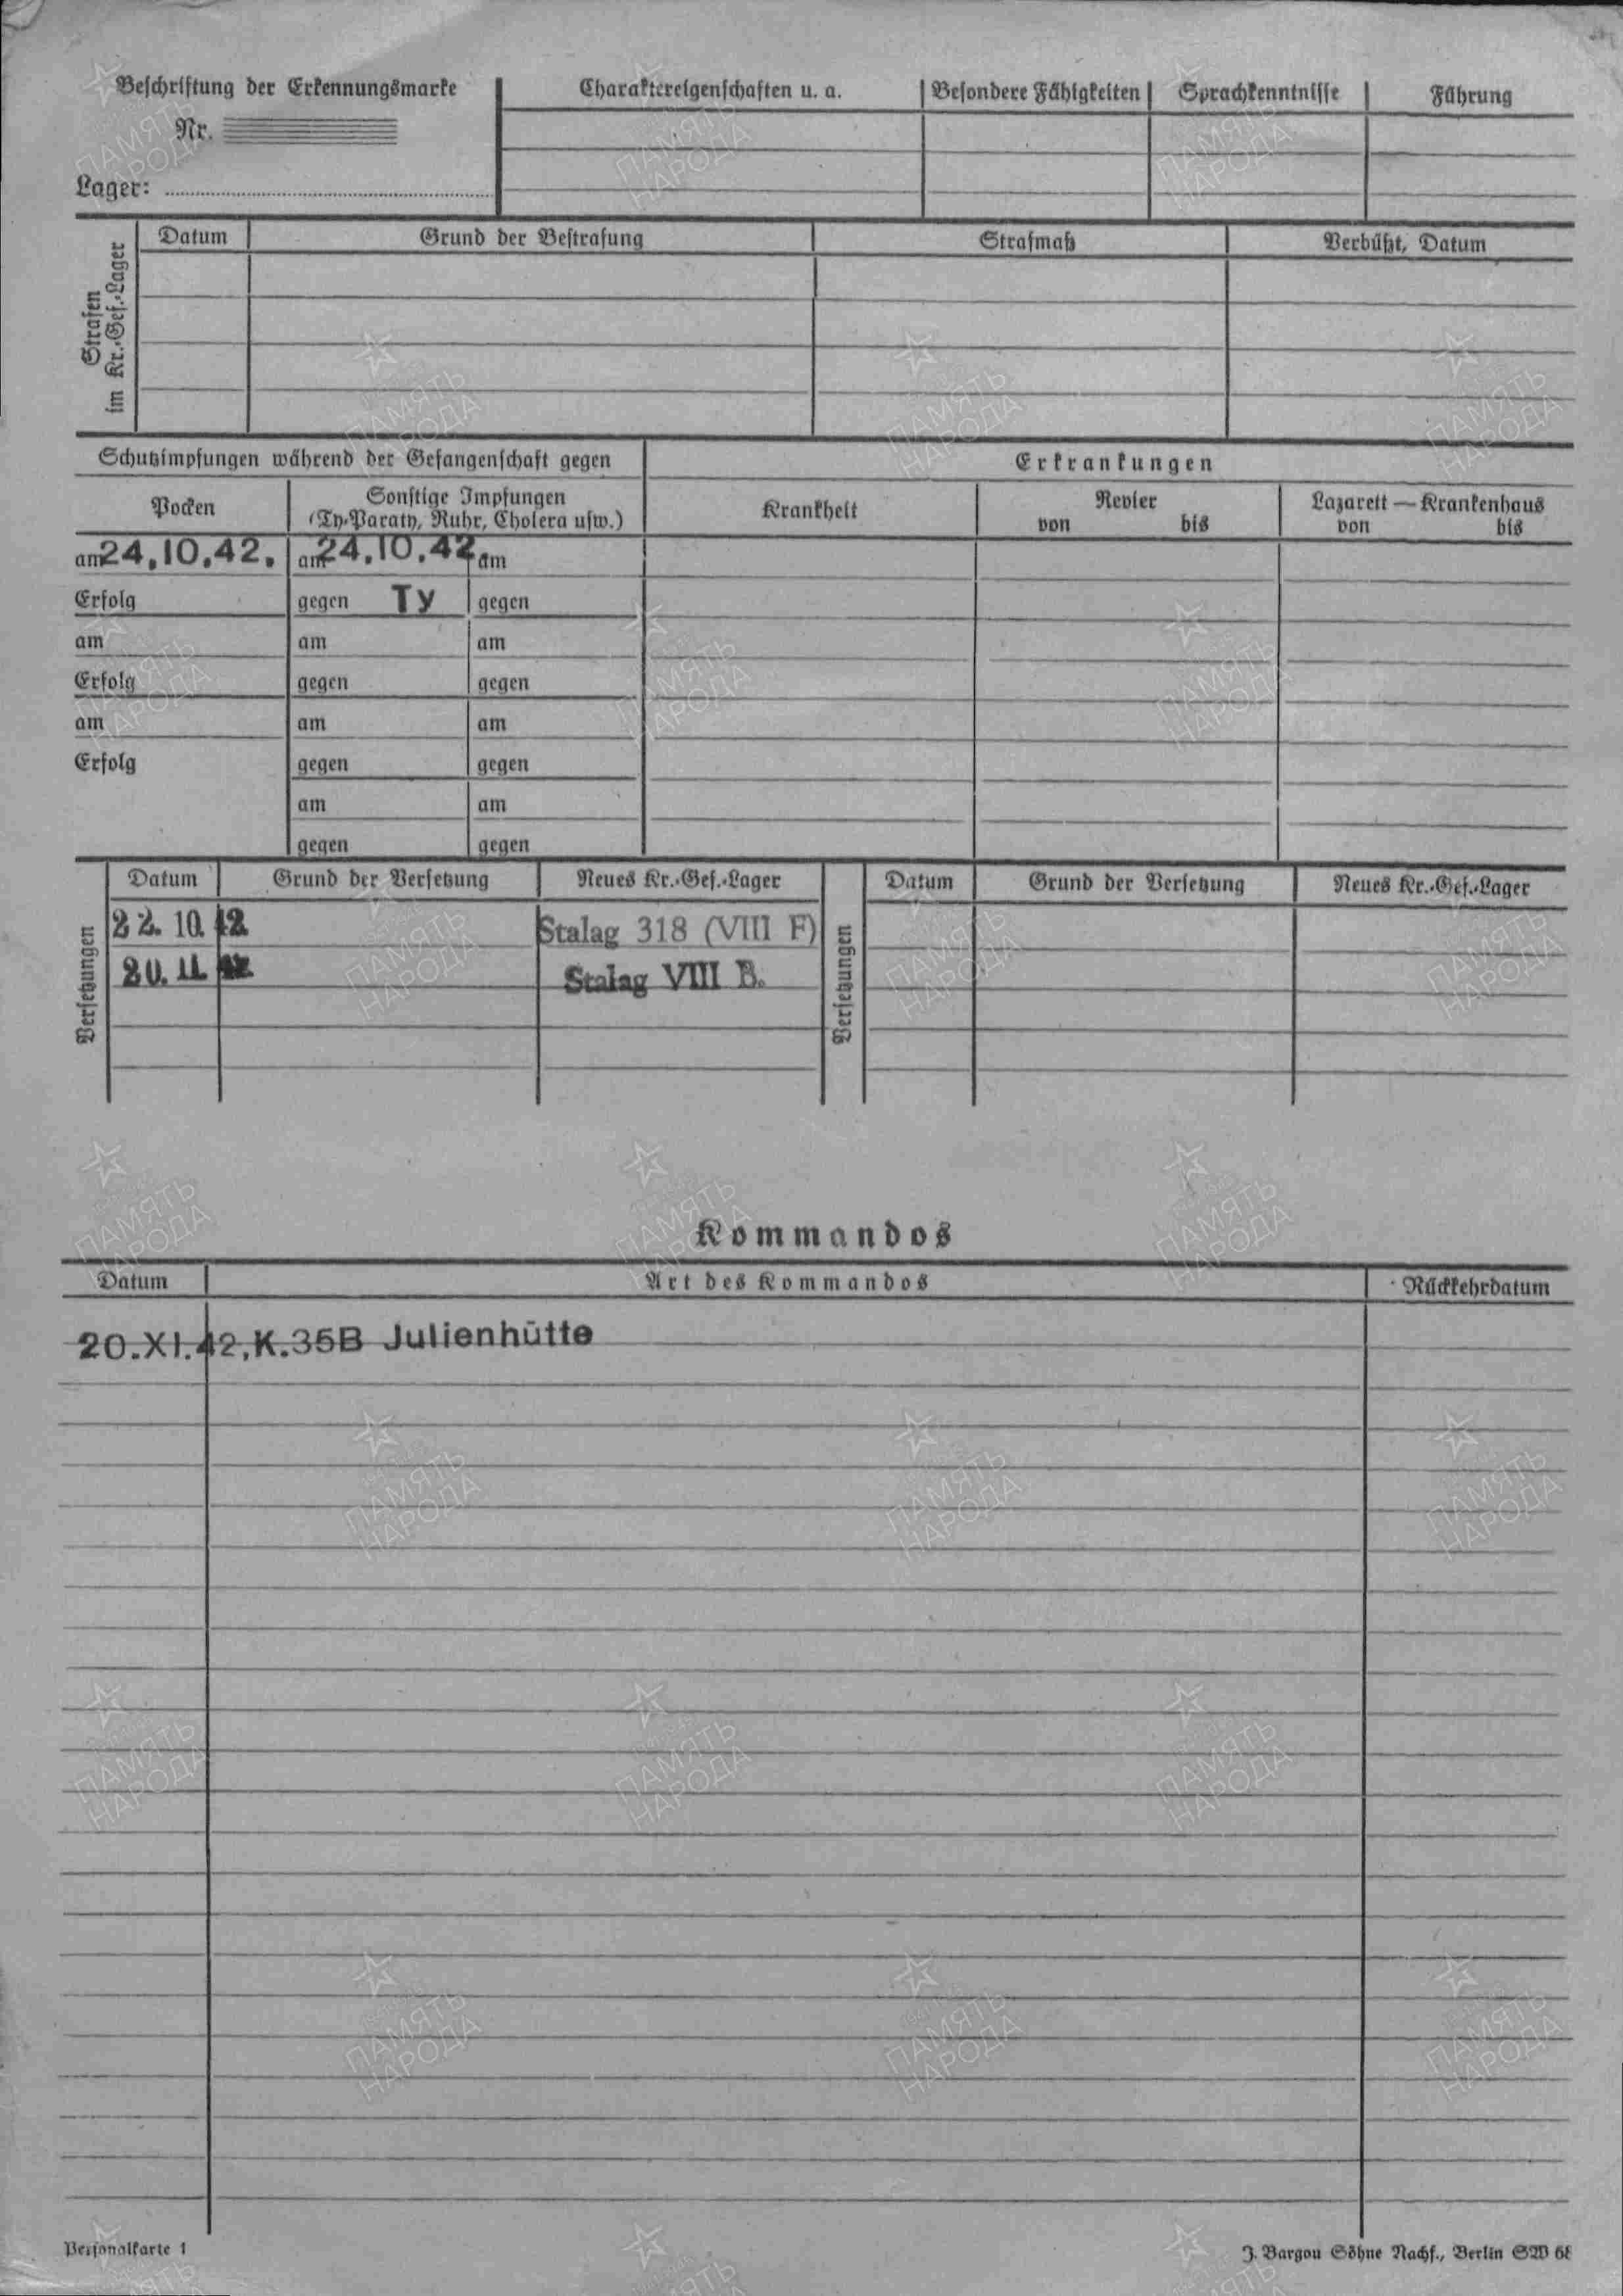 Beschriftung der Erkennungsmarke
Nr.
Lager:
Charaktereigenschaften u. a.
Besondere Fähigkeiten
Sprachkenntnisse
Führung
Strafen
im Kr.-Gef.-Lager
Datum
Grund der Bestrafung
Strafmaß
Verbüßt, Datum
Schutzimpfungen während der Gefangenschaft gegen
Erkrankungen
Pocken
Sonstige Impfungen
(Ty.-Paraty, Ruhr, Cholera usw.)
Krankheit
Revier
von bis
Lazarett — Krankenhaus
von bis
am 24.10.42. am 24.10.42. am
Erfolg gegen Ty gegen
am am am
Erfolg gegen gegen
am am am
Erfolg gegen gegen
am am
gegen gegen
Versetzungen
Datum Grund der Versetzung Neues Kr.-Gef.-Lager
10. 42 Stalag 318 (VIII F)
Stalag VIII B.
Versetzungen
Datum Grund der Versetzung Neues Kr.-Gef.-Lager
Kommandos
Datum Art des Kommandos Rückkehrdatum
20.XI.42, K.35B Julienhütte
Personalkarte 1
J. Bargou Söhne Nachf., Berlin SW 68
ПАМЯТЬ
НАРОДА